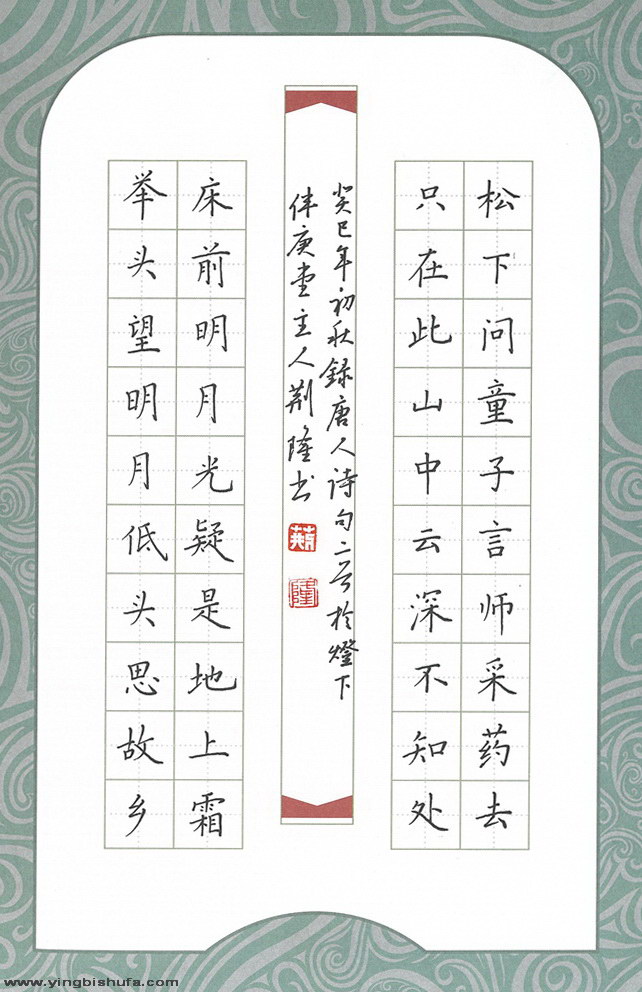 松下问童子言师采药去
只在此山中云深不知处
癸巳年初秋録唐人诗句二首於燈下
伴庚堂主人荆隆书
荆
隆
床前明月光疑是地上霜
举头望明月低头思故乡
www.yingbishufa.com